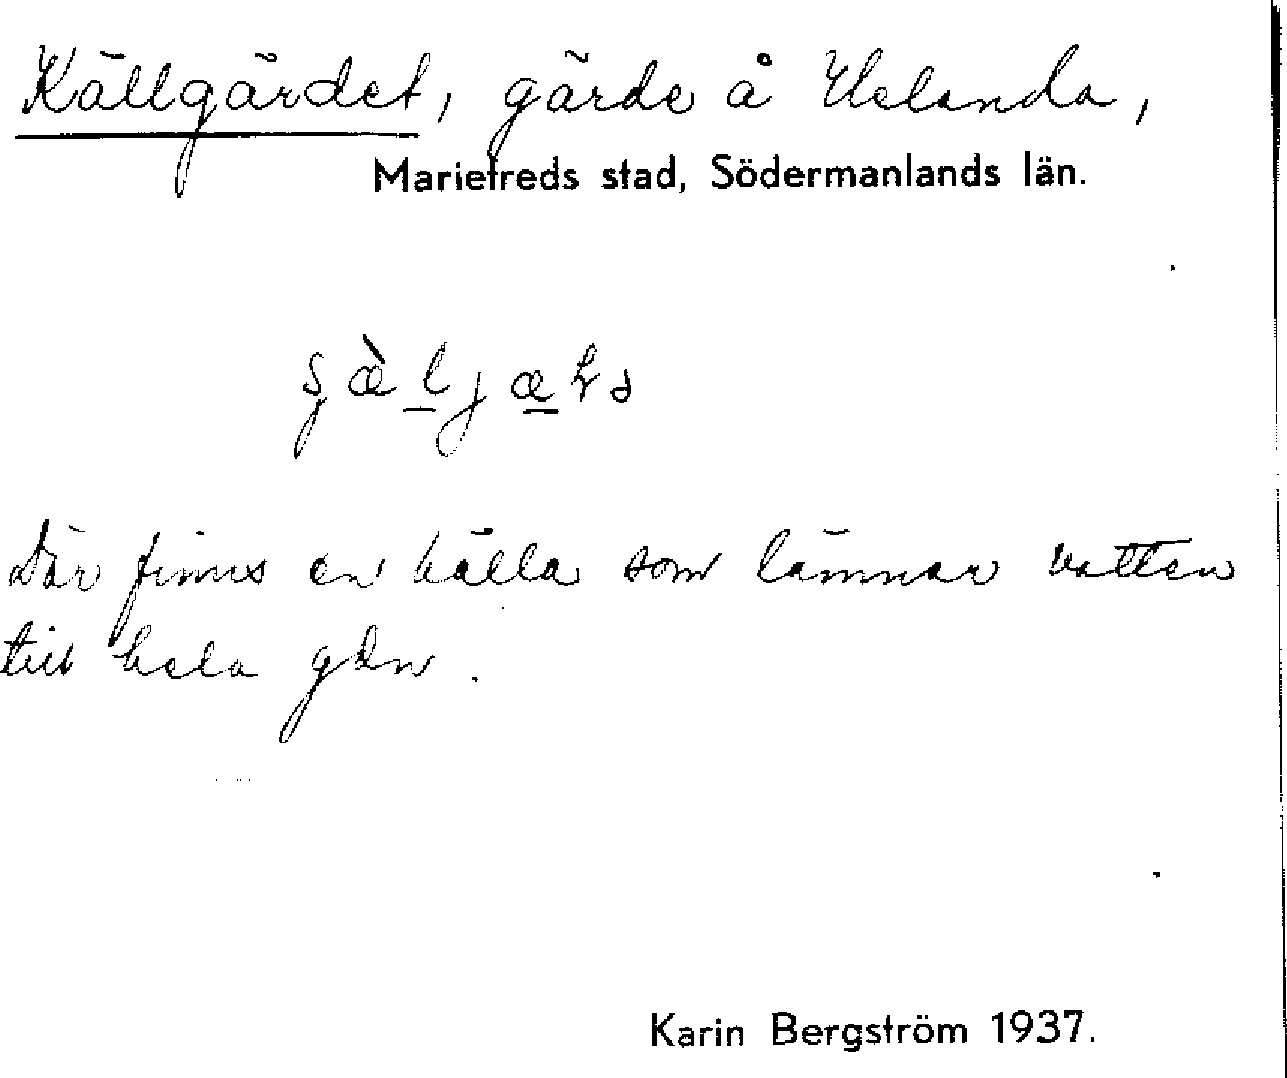 Källgärdet, gärde å Helanda,
Mariefreds stad, Södermanlands län.
Där finns en källa som lämnar vatten
till hela gdn.
Karin Bergström 1937.